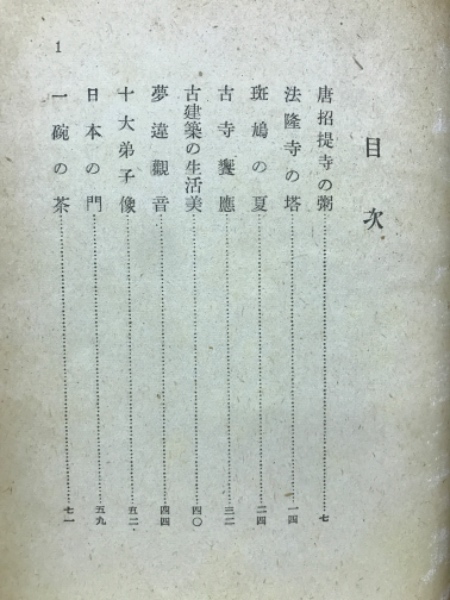 目次
唐招提寺の粥……七
法隆寺の塔……一四
斑鳩の夏……二四
古寺饗應……三二
古建築の生活美……四〇
夢違觀音……四四
十大弟子像……五二
日本の門……五九
一碗の茶……七一
1